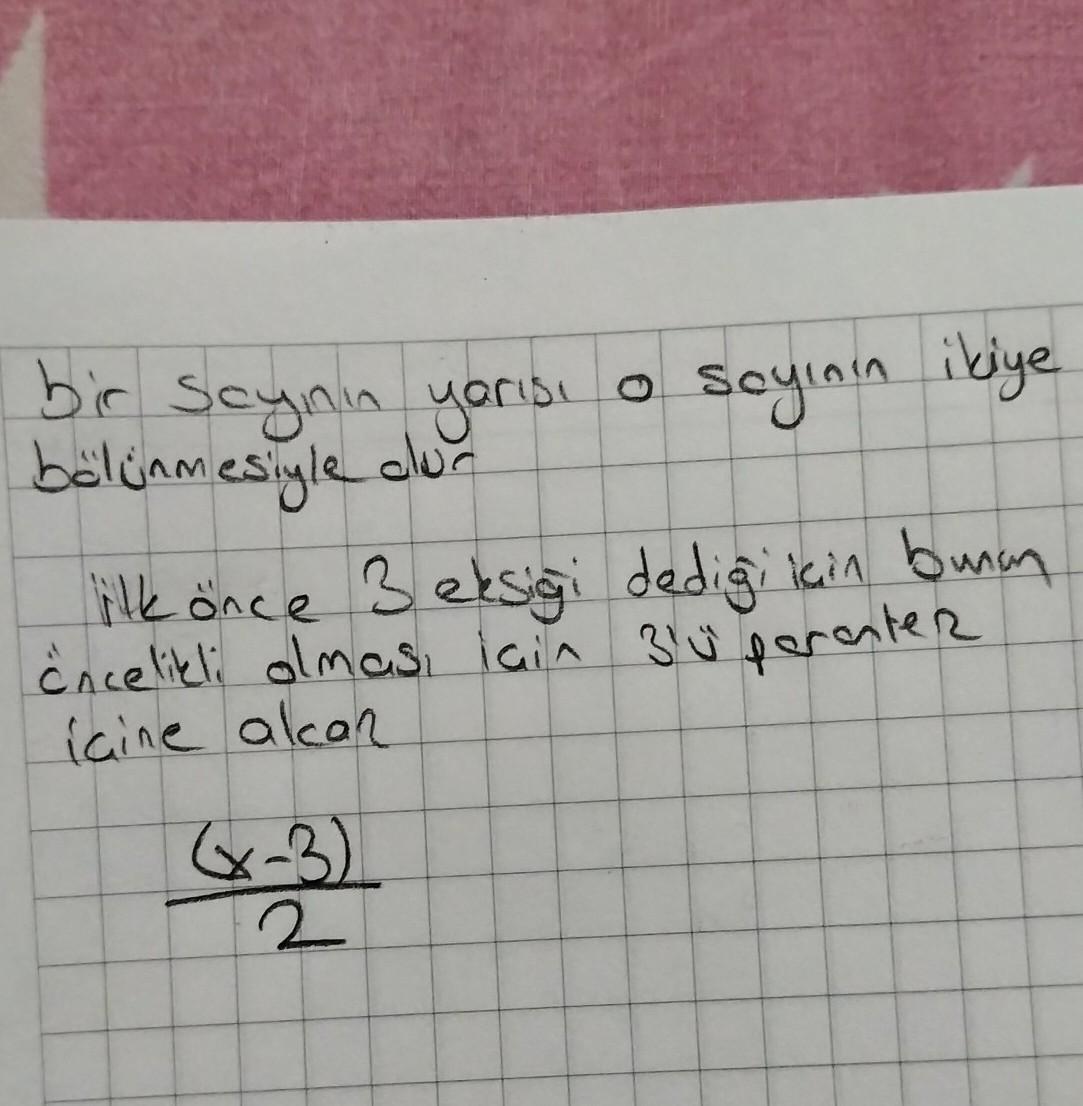 bir sayının yarısı o sayının ikiye
bölünmesiyle olur
ilk önce 3 eksiği dediği için bunun
öncelikli olması için 3'ü parantez
içine alcaz
(x-3)
2